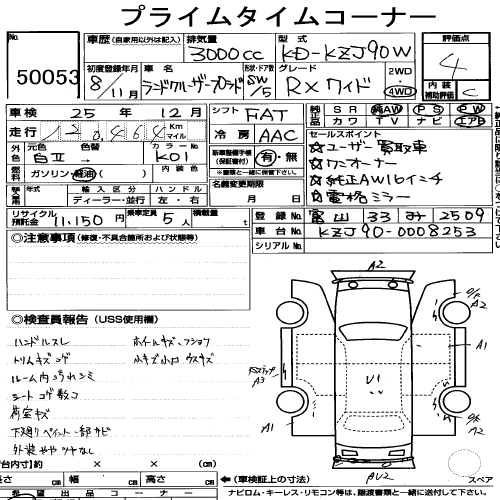 プライムタイムコーナー
No.
50053
車歴 (自家用以外は記入)
排気量
3000cc
型式
KD-KZJ90W
評価点
4
内装
補助評価
C
初度登録年月
8/11月
車名
ランドクルーザープラド
形状・ドア数
SW/5
グレード
RXワイド
2WD
4WD
車検 25年 12月
シフト FAT
純正品
SR 純AW PS PW
カワ TV ナビ エアB
走行 120,464 Km マイル
冷房 AAC
セールスポイント
☆ユーザー買取車
☆ワンオーナー
☆純正AW16インチ
☆電格ミラー
外色
元色 白II → 色替
カラーNo. K01
新車整備手帳
(保証書付)
有・無
※書類と一緒に保管して下さい。
燃料
ガソリン・軽油( )
内装色
名義変更期限
月 日
年式
輸入区分
ディーラー・並行
ハンドル
左・右
リサイクル
預託金
11,150円
乗車定員
5人
積載量
t
登録No. 富山 33 み 2509
車台No. KZJ90-0008253
シリアルNo.
◎注意事項 (修復・不具合箇所および状態等)
◎検査員報告 (USS使用欄)
ハンドルスレ
トリムキズコゲ
ルーム内汚れシミ
シートコゲ数コ
荷室キズ
下廻りペイント一部サビ
ホイルキズ・フショク
小キズ小凹ウスキズ
A2
A2
A1
A3
V1
A1
A2
AU2
スペア
台内寸)約 × × (cm)
長さ cm 幅 cm 高さ cm
(車検証上の寸法)
出品コーナー
ナビロム・キーレス・リモコン等は、譲渡書類と一緒に送付して下さい。